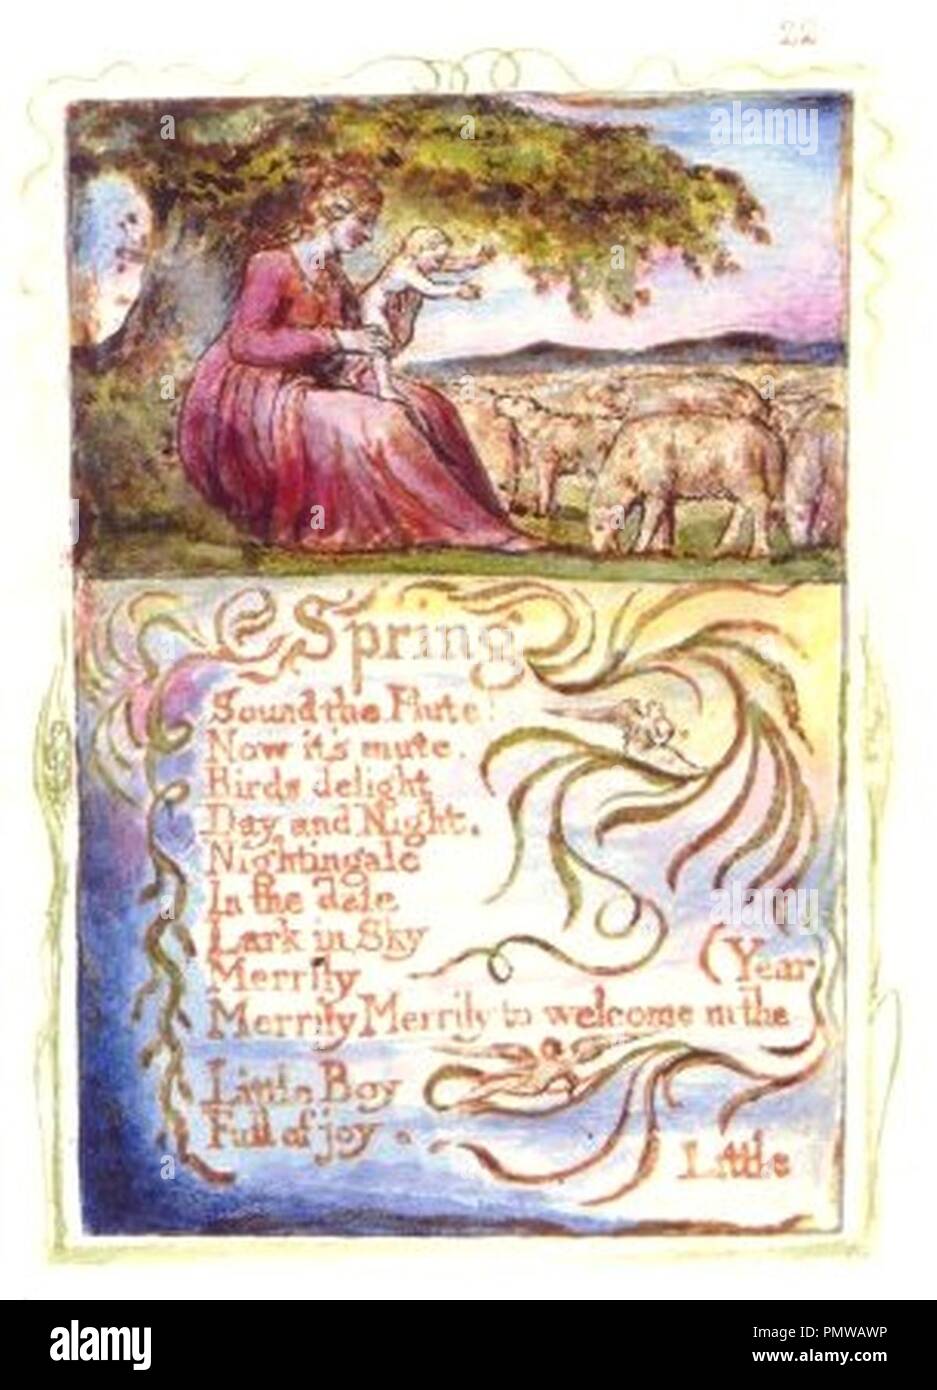 22
Spring
Sound the Flute!
Now it's mute.
Birds delight
Day and Night.
Nightingale
In the dale
Lark in Sky
Merrily
(Year
Merrily Merrily to welcome in the
Little Boy
Full of joy.
Little
alamy
alamy
alamy
Image ID: PMWAWP
www.alamy.com